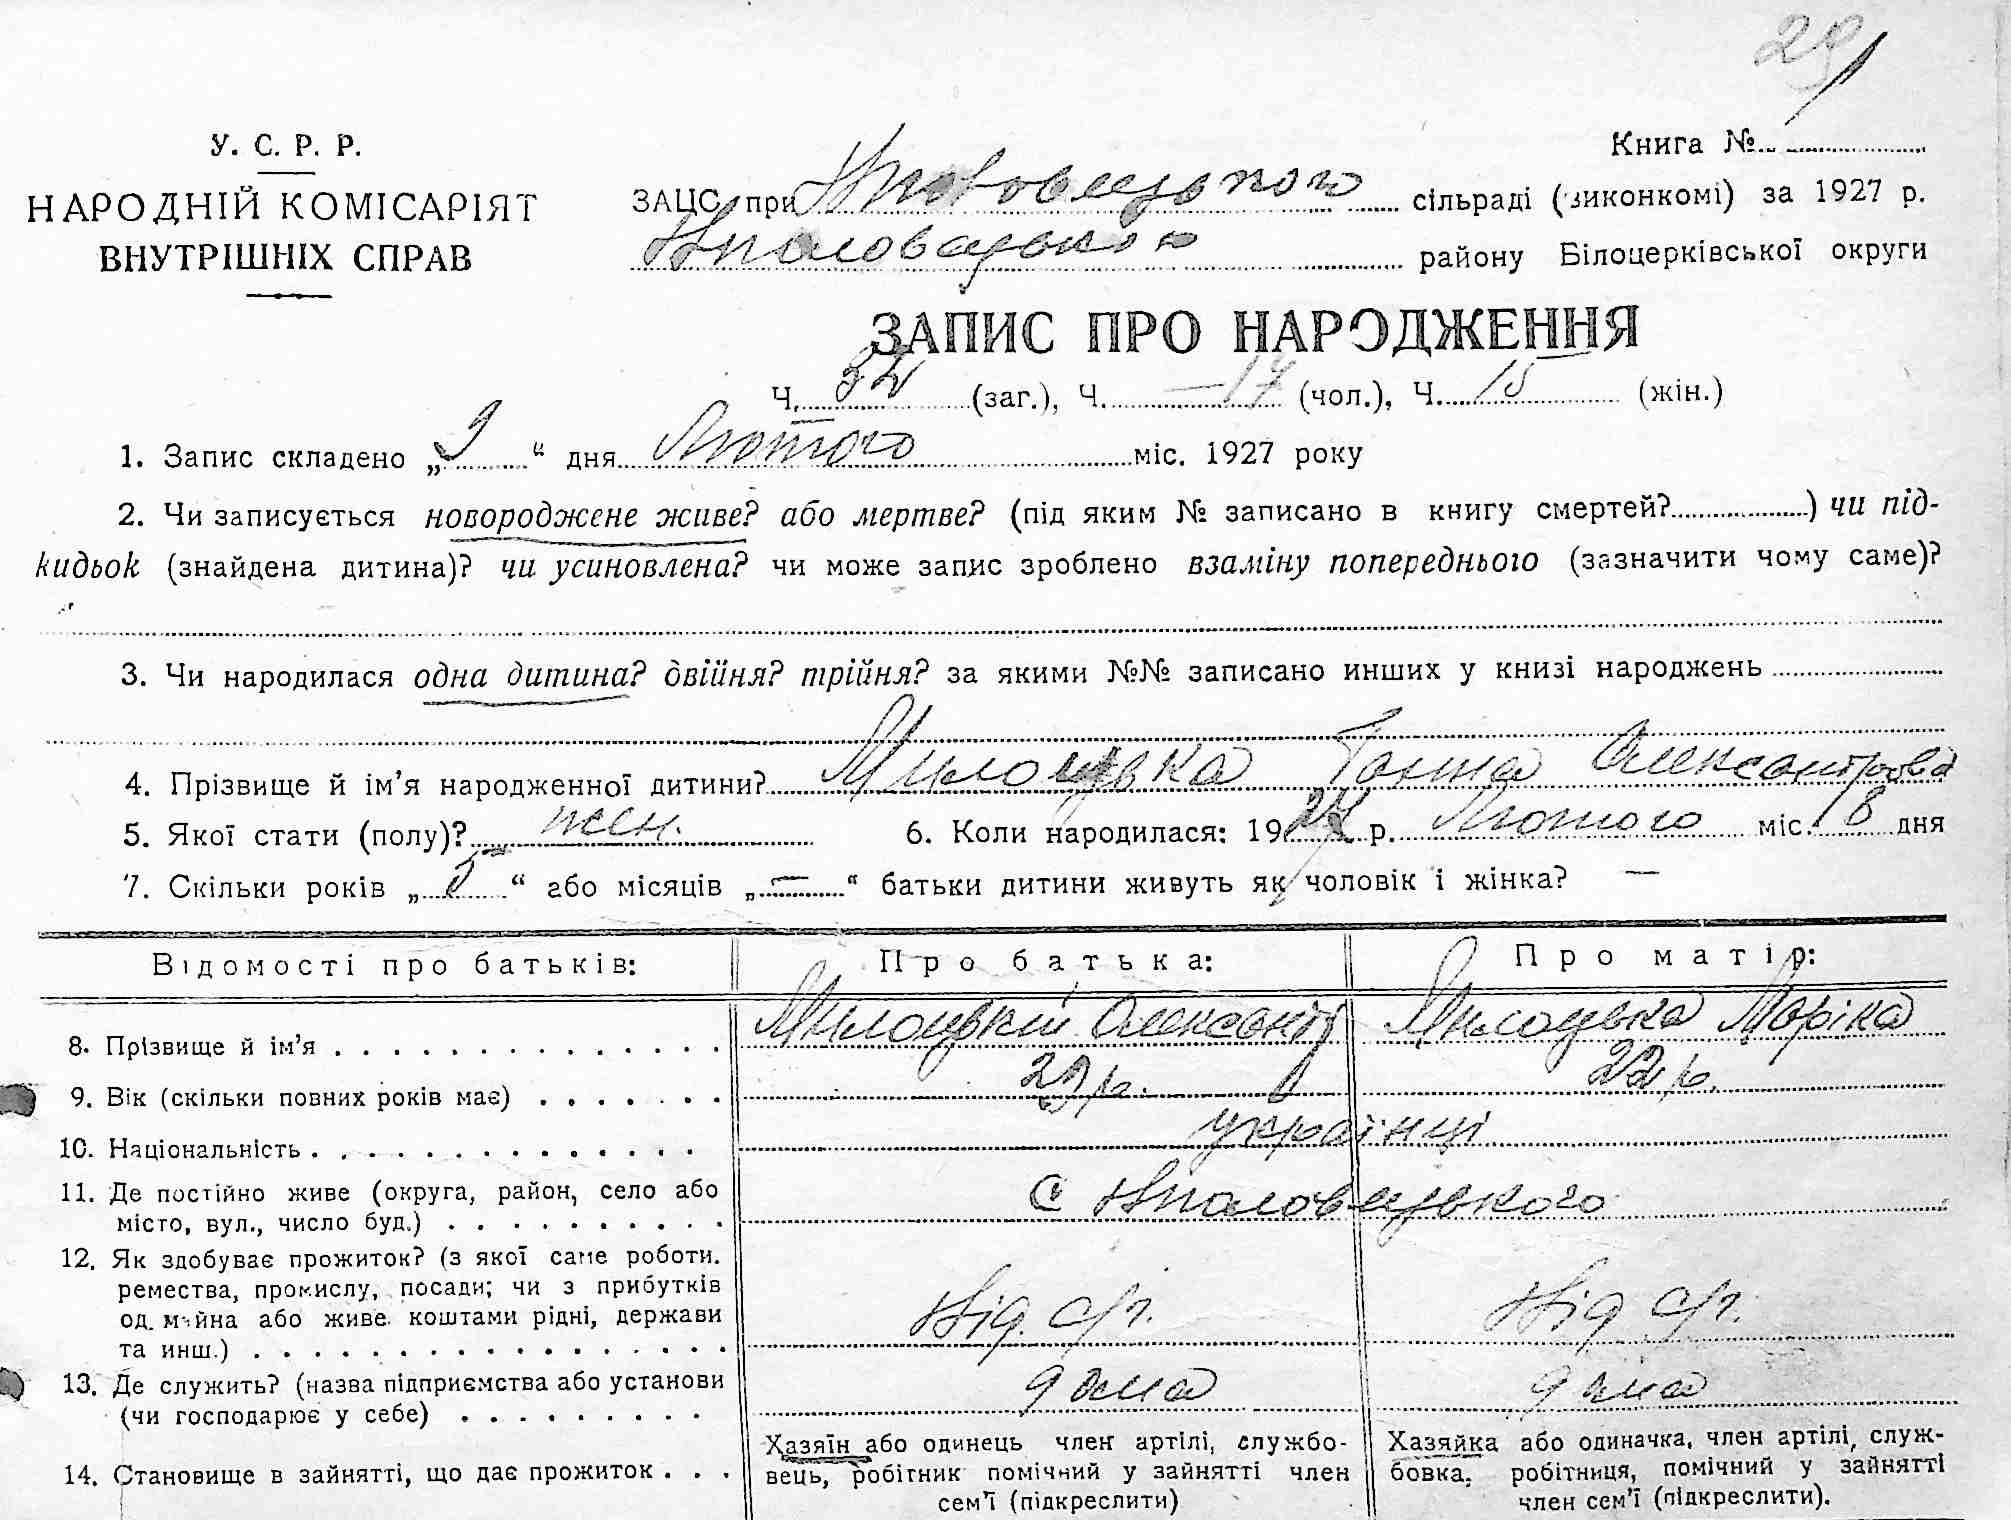 29
У. С. Р. Р.
НАРОДНІЙ КОМІСАРІЯТ
ВНУТРІШНІХ СПРАВ
Книга №
ЗАЦС при сільраді (виконкомі) за 1927 р.
району Білоцерківської округи
ЗАПИС ПРО НАРОДЖЕННЯ
Ч. 32 (заг.), Ч. — 17 (чол.), Ч. 15 (жін.)
1. Запис складено „ 9 “ дня Лютого міс. 1927 року
2. Чи записується новороджене живе? або мертве? (під яким № записано в книгу смертей? ) чи під-
кидьок (знайдена дитина)? чи усиновлена? чи може запис зроблено взаміну попереднього (зазначити чому саме)?
3. Чи народилася одна дитина? двійня? трійня? за якими №№ записано инших у книзі народжень
4. Прізвище й ім’я народженної дитини? Милоцька Ганна Олександров
5. Якої стати (полу)? жен. 6. Коли народилася: 1927 р. Лютого міс. 8 дня
7. Скільки років „ 5 “ або місяців „ — “ батьки дитини живуть як чоловік і жінка? —
Відомості про батьків: Про батька: Про матір:
8. Прізвище й ім’я Милоцький Олександр Милоцька Маріка
9. Вік (скільки повних років має) 29 р. 22 р.
10. Національність українці
11. Де постійно живе (округа, район, село або
місто, вул., число буд.) С
12. Як здобуває прожиток? (з якої саме роботи,
ремества, промислу, посади; чи з прибутків
од майна або живе коштами рідні, держави
та инш.) Від с/г. Від с/г.
13. Де служить? (назва підприємства або установи
(чи господарює у себе) дома дома
14. Становище в зайнятті, що дає прожиток
Хазяїн або одинець член артілі, службо-
вець, робітник помічний у зайнятті член
сем’ї (підкреслити)
Хазяйка або одиначка, член артілі, служ-
бовка, робітниця, помічний у зайнятті
член сем’ї (підкреслити).